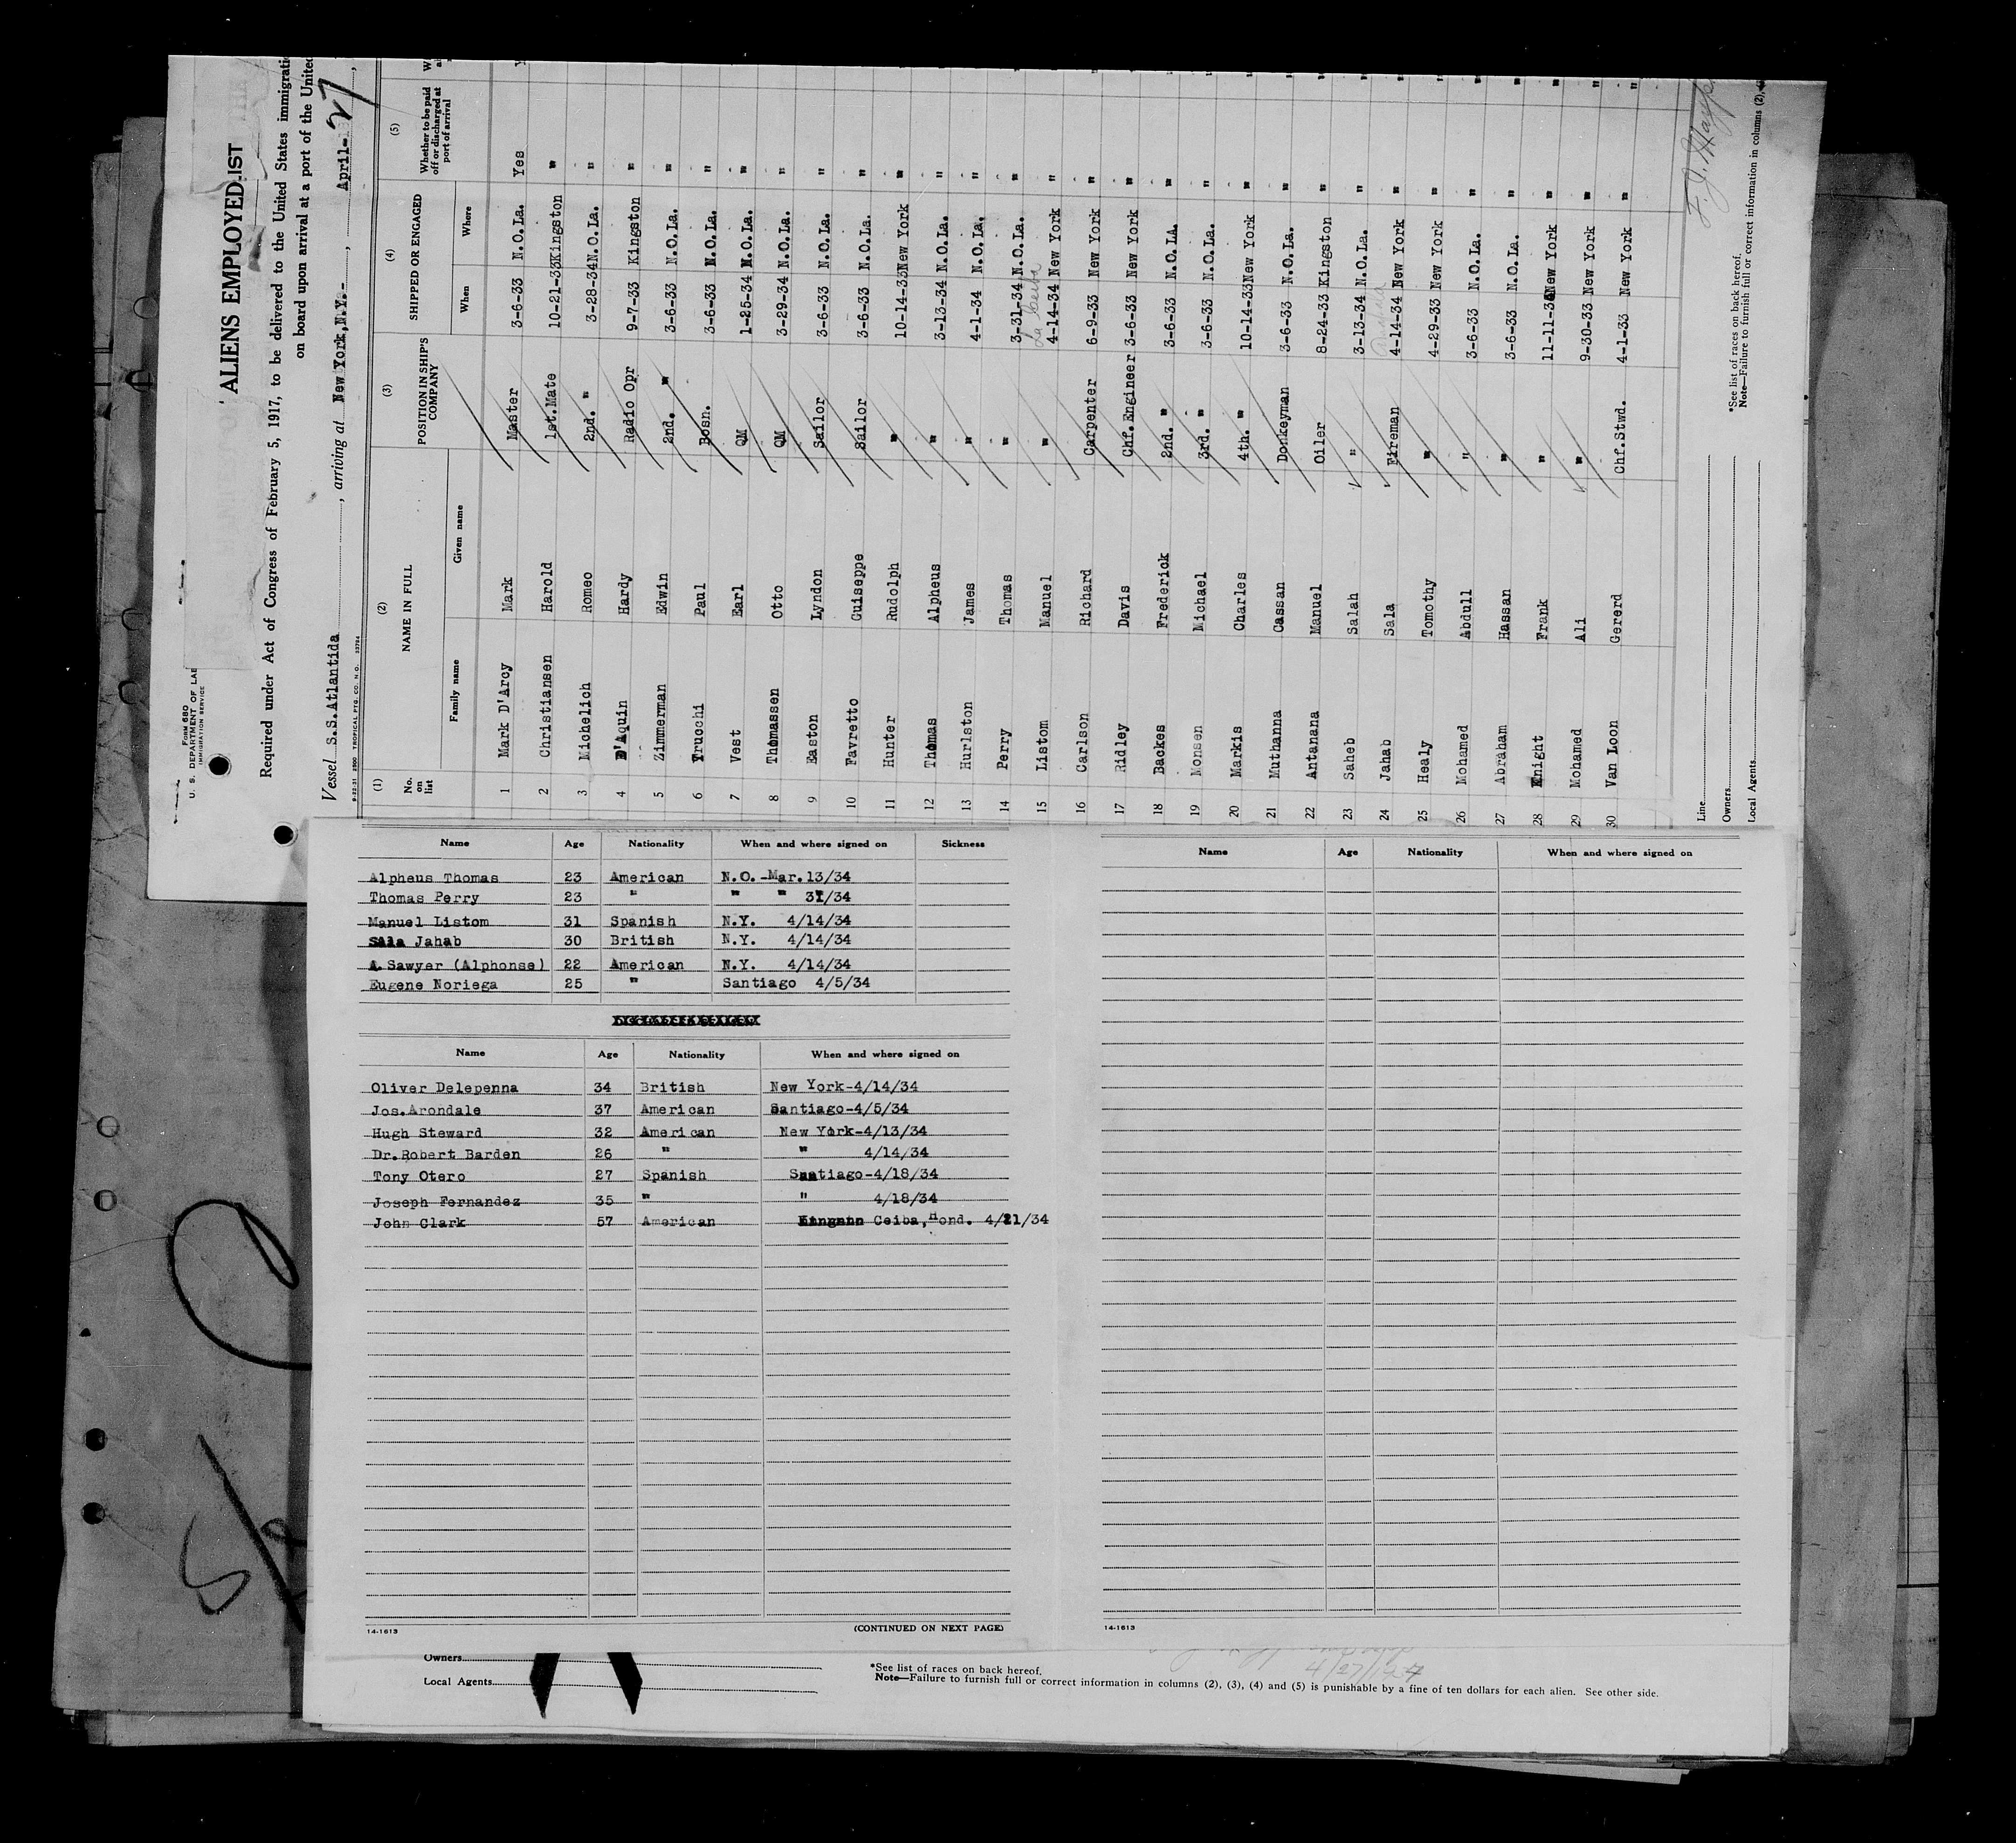 Form 680
U. S. DEPARTMENT OF LAB
IMMIGRATION SERVICE
ALIENS EMPLOYED
LIST
Required under Act of Congress of February 5, 1917, to be delivered to the United States immigrati
on board upon arrival at a port of the United
Vessel S.S.Atlantida, arriving at New York,N.Y.-, April- 27
9-22-31 2500 TROPICAL PTG. CO. N. O. 33724
(1) (2) (3) (4) (5)
No. on list NAME IN FULL POSITION IN SHIP'S COMPANY SHIPPED OR ENGAGED Whether to be paid off or discharged at port of arrival
Family name Given name When Where
1 Mark D'Arcy Mark Master 3-6-33 N.O.La. Yes
2 Christiansen Harold 1st.Mate 10-21-33 Kingston "
3 Michelich Romeo 2nd. " 3-28-34 N.O.La. "
4 D'Aquin Hardy Radio Opr 9-7-33 Kingston "
5 Zimmerman Edwin 2nd. " 3-6-33 N.O.La. "
6 Trucchi Paul Bosn. 3-6-33 N.O.La. "
7 Vest Earl QM 1-25-34 N.O.La. "
8 Thomassen Otto QM 3-29-34 N.O.La. "
9 Easton Lyndon Sailor 3-6-33 N.O.La. "
10 Favretto Guiseppe Sailor 3-6-33 N.O.La. "
11 Hunter Rudolph " 10-14-33 New York "
12 Thomas Alpheus " 3-13-34 N.O.La. "
13 Hurlston James " 4-1-34 N.O.La. "
14 Perry Thomas " 3-31-34 N.O.La. "
La Ceiba
15 Listom Manuel " 4-14-34 New York "
16 Carlson Richard Carpenter 6-9-33 New York "
17 Riley Davis Chf.Engineer 3-6-33 New York "
18 Backes Frederick 2nd. " 3-6-33 N.O.LA. "
19 Monsen Michael 3rd. " 3-6-33 N.O.La. "
20 Markis Charles 4th. " 10-14-33 New York "
21 Muthanna Cassan Donkeyman 3-6-33 N.O.La. "
22 Antanana Manuel Oiler 8-24-33 Kingston "
23 Saheb Salah " 3-13-34 N.O.La. "
24 Jahab Sala Fireman 4-14-34 New York "
25 Healy Tomothy " 4-29-33 New York "
26 Mohamed Abdull " 3-6-33 N.O.La. "
27 Abraham Hassan " 3-6-33 N.O.La. "
28 Knight Frank " 11-11-34 New York "
29 Mohamed Ali " 9-30-33 New York "
30 Van Loon Gererd Chf.Stwd. 4-1-33 New York "
Line
Owners
Local Agents
*See list of races on back hereof.
Note—Failure to furnish full or correct information in columns (2),
Name Age Nationality When and where signed on Sickness
Alpheus Thomas 23 American N.O.-Mar.13/34
Thomas Perry 23 " " " 31/34
Manuel Listom 31 Spanish N.Y. 4/14/34
Sala Jahab 30 British N.Y. 4/14/34
A.Sawyer (Alphonse) 22 American N.Y. 4/14/34
Eugene Noriega 25 " Santiago 4/5/34
Name Age Nationality When and where signed on
Oliver Delepenna 34 British New York-4/14/34
Jos.Arondale 37 American Santiago-4/5/34
Hugh Steward 32 American New York-4/13/34
Dr.Robert Barden 26 " " 4/14/34
Tony Otero 27 Spanish Santiago-4/18/34
Joseph Fernandez 35 " " 4/18/34
John Clark 57 American Ceiba,Hond. 4/21/34
14-1613 (CONTINUED ON NEXT PAGE)
Name Age Nationality When and where signed on
14-1613
Owners
Local Agents
4/27/1934
*See list of races on back hereof.
Note—Failure to furnish full or correct information in columns (2), (3), (4) and (5) is punishable by a fine of ten dollars for each alien. See other side.